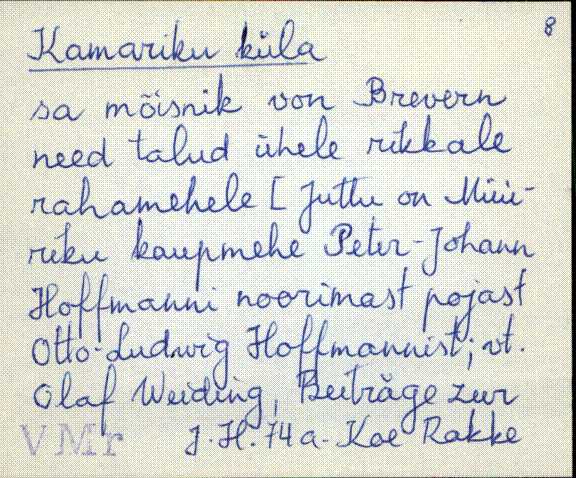 8
Kamariku küla
sa mõisnik von Brevern
need talud ühele rikkale
rahamehele [ Juttu on Müü-
riku kaupmehe Peter-Johann
Hoffmanni noorimast pojast
Otto-Ludwig Hoffmannist; vt.
Olaf Weiding, Beiträge zur
VMr J. H. 74 a. Koe Rakke